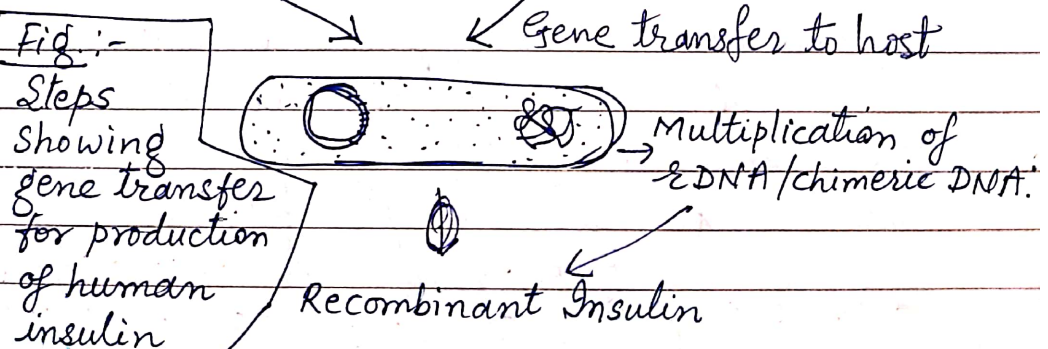 Fig :-
Steps
Showing
gene transfer
for production
of human
insulin
Gene transfer to host
Multiplication of
rDNA/chimeric DNA.
Recombinant Insulin